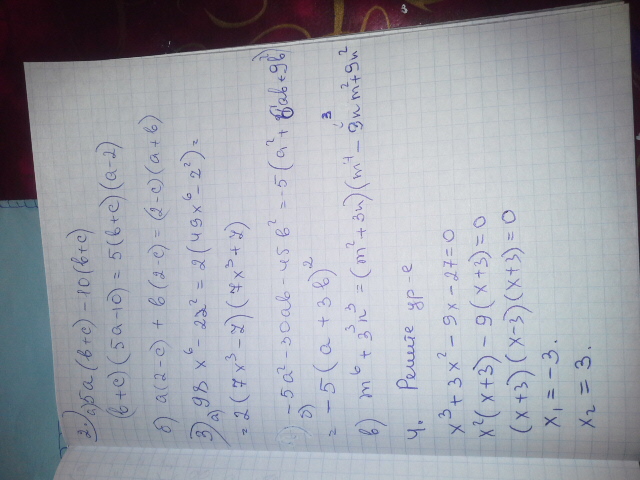 2.) а) 5a(b+c) - 10(b+c)
(b+c)(5a-10) = 5(b+c)(a-2)
б) a(2-c) + b(2-c) = (2-c)(a+b)
3) а) 98x⁶ - 2z² = 2(49x⁶ - z²) =
= 2(7x³ - z)(7x³ + z)
б) -5a² - 30ab - 45b² = -5(a² + 6ab + 9b²)
= -5(a + 3b)²
в) m⁶ + 3³n³ = (m² + 3n)(m⁴ - 3nm² + 9n²
4. Решите ур-е
x³ + 3x² - 9x - 27 = 0
x²(x+3) - 9(x+3) = 0
(x+3)(x-3)(x+3) = 0
x₁ = -3.
x₂ = 3.